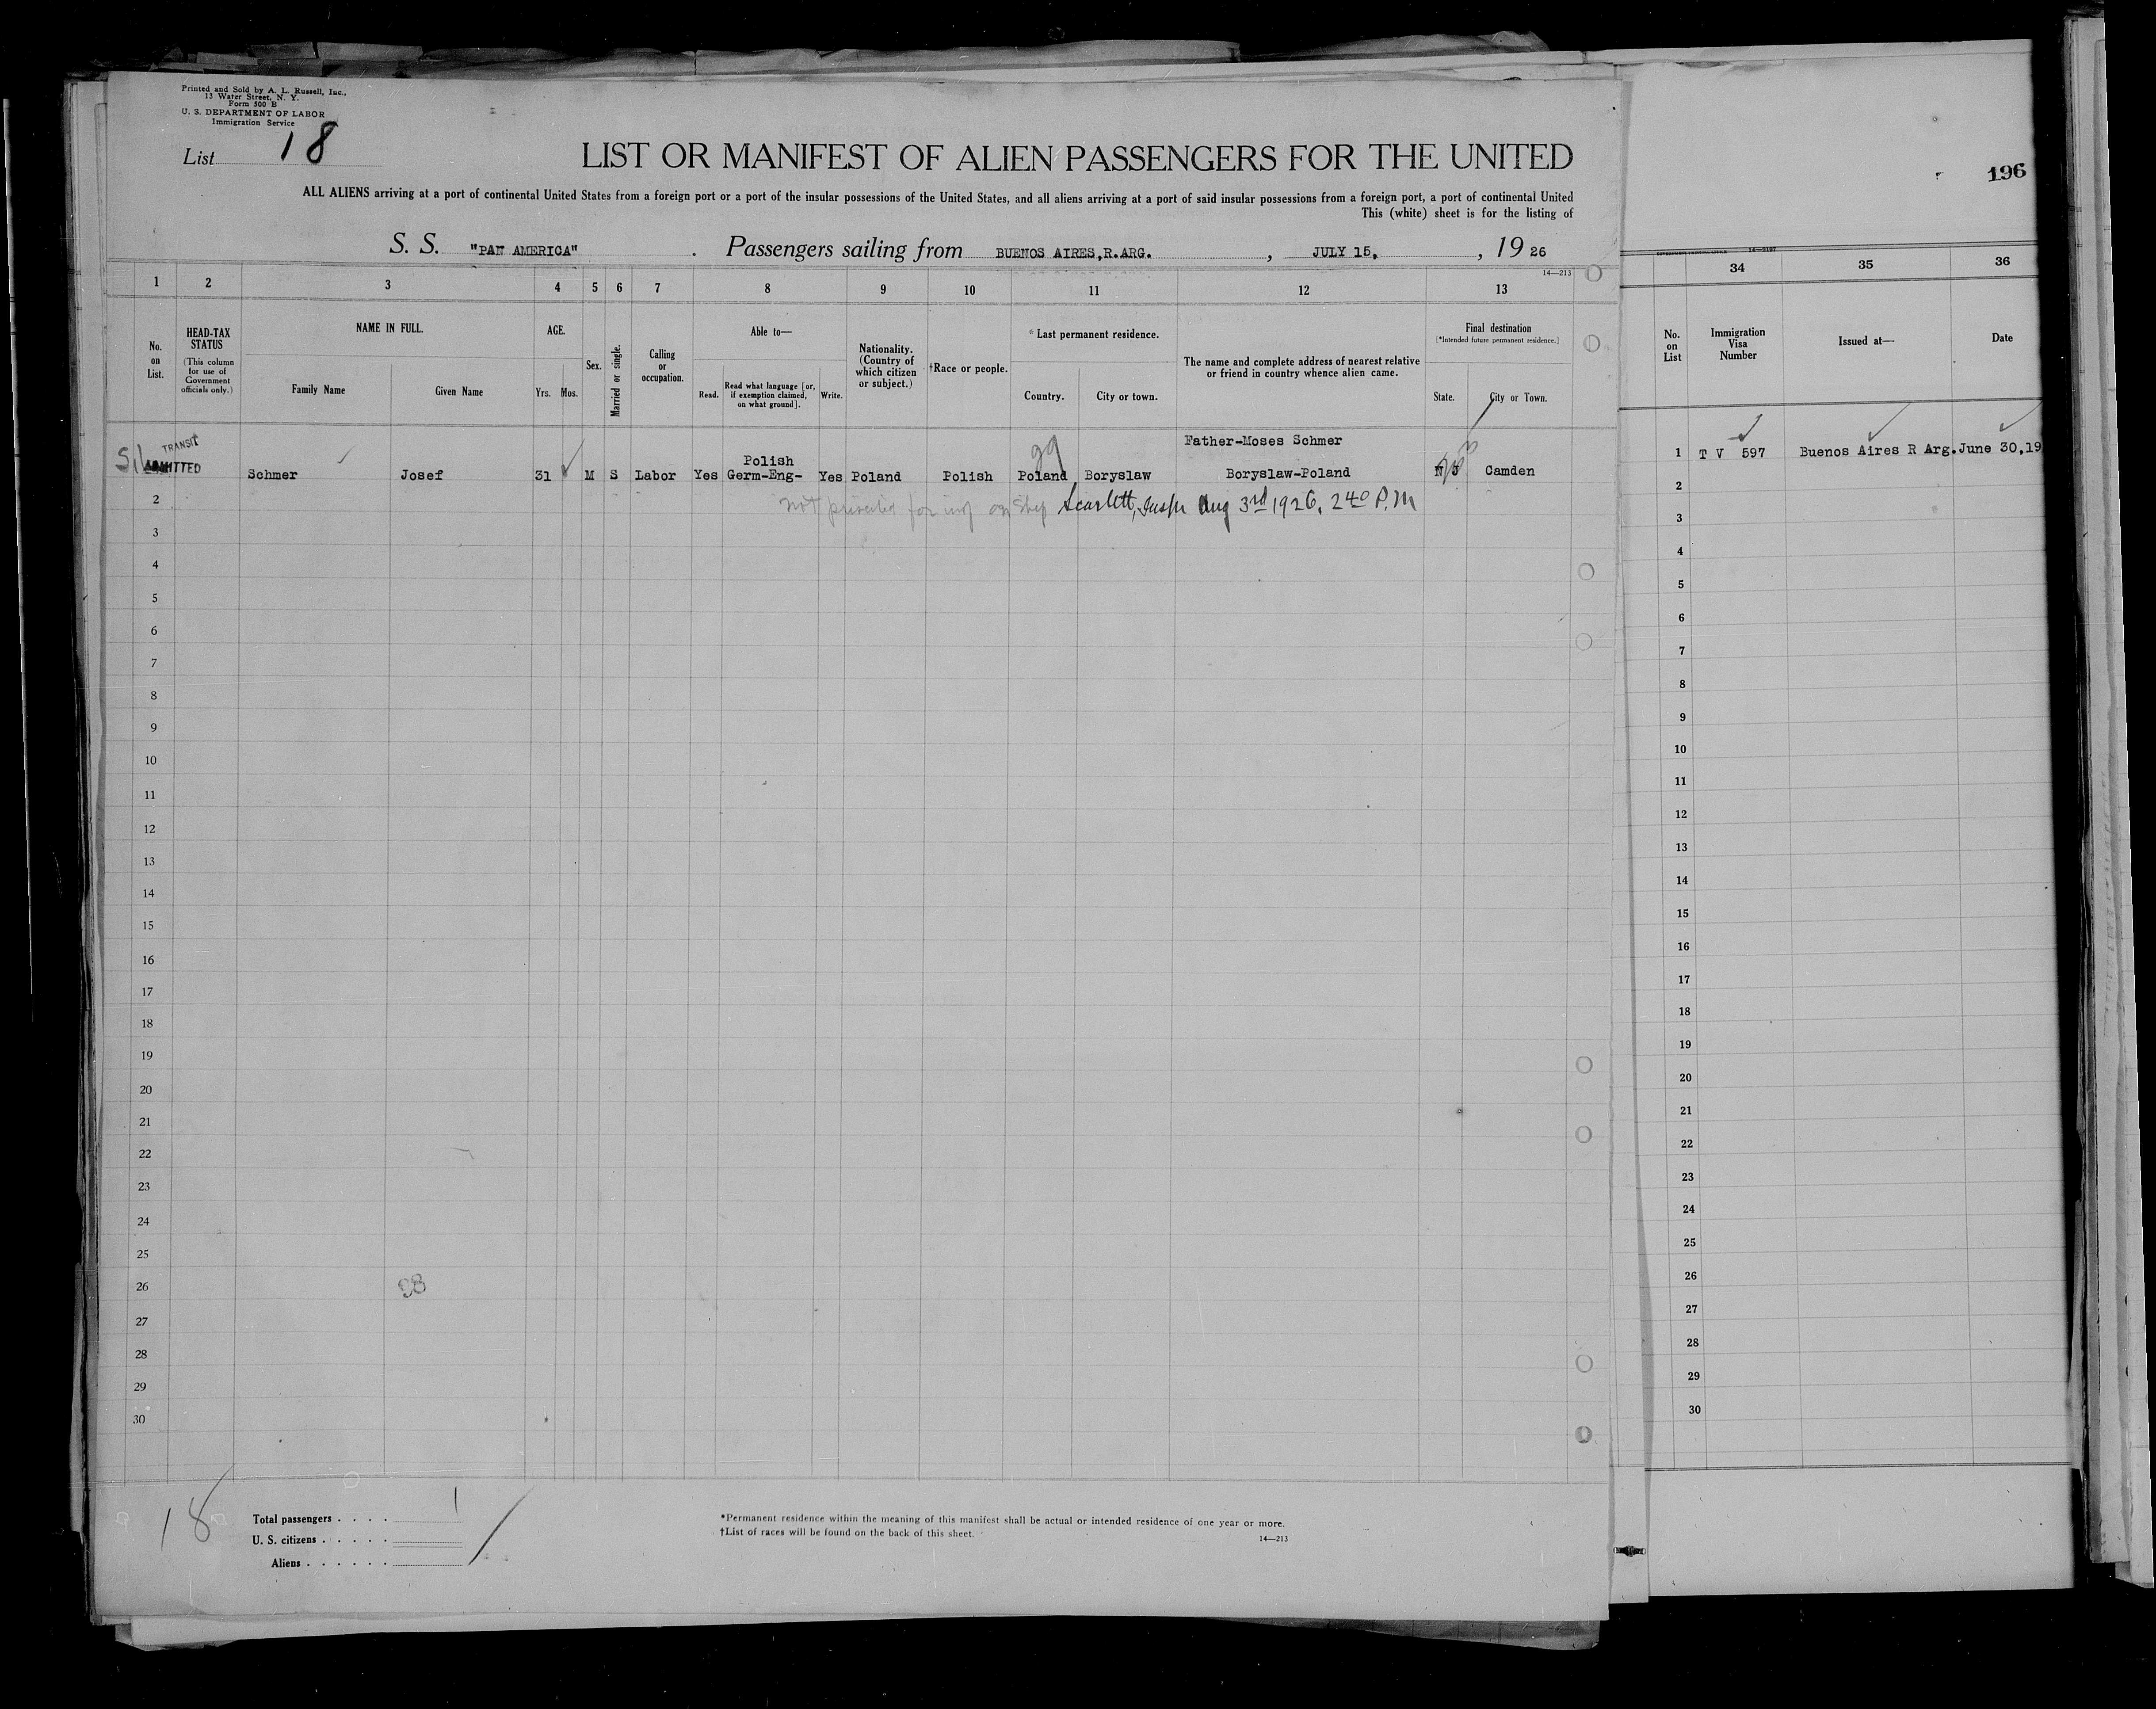 Printed and Sold by A. L. Russell, Inc.,
13 Water Street, N. Y.
Form 500 B
U. S. DEPARTMENT OF LABOR
Immigration Service
List 18
LIST OR MANIFEST OF ALIEN PASSENGERS FOR THE UNITED
ALL ALIENS arriving at a port of continental United States from a foreign port or a port of the insular possessions of the United States, and all aliens arriving at a port of said insular possessions from a foreign port, a port of continental United
This (white) sheet is for the listing of
S. S. "PAN AMERICA" . Passengers sailing from BUENOS AIRES,R.ARG. , JULY 15, , 19 26
14—213
1 2 3 4 5 6 7 8 9 10 11 12 13
No. on List.
HEAD-TAX STATUS
(This column for use of Government officials only.)
NAME IN FULL.
Family Name Given Name
AGE.
Yrs. Mos.
Sex.
Married or single.
Calling or occupation.
Able to—
Read. Read what language [or, if exemption claimed, on what ground]. Write.
Nationality. (Country of which citizen or subject.)
†Race or people.
*Last permanent residence.
Country. City or town.
The name and complete address of nearest relative or friend in country whence alien came.
Final destination
[*Intended future permanent residence.]
State. City or Town.
TRANSIT
Father-Moses Schmer
ADMITTED
Polish
Schmer Josef 31 M S Labor Yes Germ-Eng- Yes Poland Polish Poland Boryslaw Boryslaw-Poland N J Camden
not on ship Scarlett, Inspr Aug 3rd 1926, 2 40 P.M
2
3
4
5
6
7
8
9
10
11
12
13
14
15
16
17
18
19
20
21
22
23
24
25
26
27
28
29
30
18
Total passengers . . . . 1
U. S. citizens . . . . .
Aliens . . . . . .
*Permanent residence within the meaning of this manifest shall be actual or intended residence of one year or more.
†List of races will be found on the back of this sheet.
14—213
196
34 35 36
No. on List
Immigration Visa Number
Issued at—
Date
1 T V 597 Buenos Aires R Arg. June 30,19
2
3
4
5
6
7
8
9
10
11
12
13
14
15
16
17
18
19
20
21
22
23
24
25
26
27
28
29
30